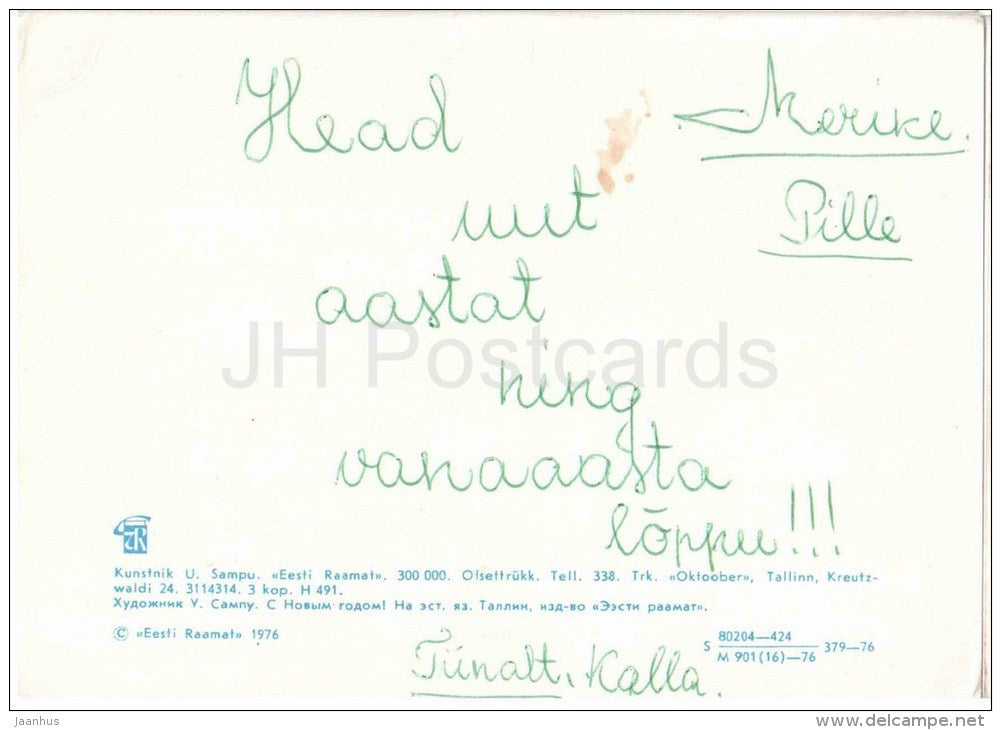 Head
Merike.
Pille
uut
aastat
ning
vanaaasta
lõppu!!!
JH Postcards
Kunstnik U. Sampu. «Eesti Raamat». 300 000. Ofsettrükk. Tell. 338. Trk. «Oktoober», Tallinn, Kreutz-
waldi 24. 3114314. 3 kop. H 491.
Художник У. Сампу. С Новым годом! На эст. яз. Таллин, изд-во «Ээсти раамат».
© «Eesti Raamat» 1976
S 80204—424
M 901(16)—76 379—76
Tiinalt, Kalla.
Jaanhus
www.delcampe.net